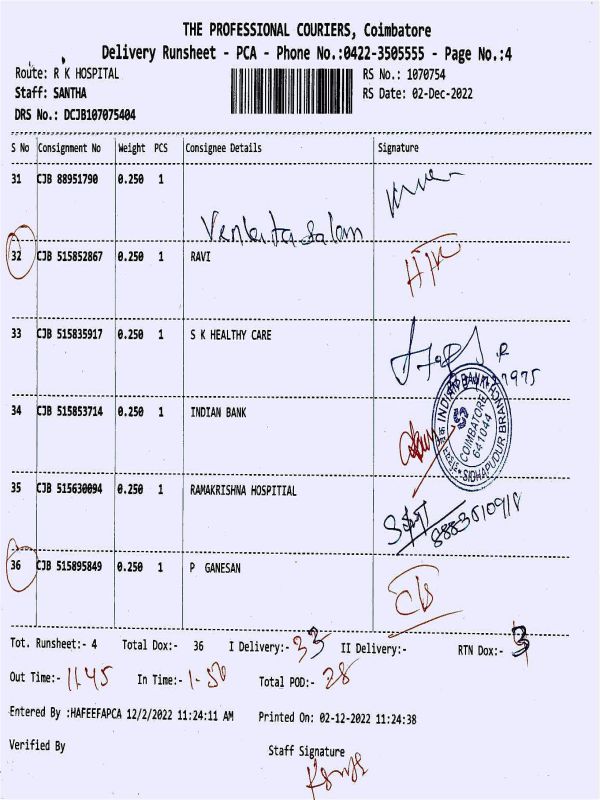 THE PROFESSIONAL COURIERS, Coimbatore
Delivery Runsheet - PCA - Phone No.:0422-3505555 - Page No.:4
Route: R K HOSPITAL RS No.: 1070754
Staff: SANTHA RS Date: 02-Dec-2022
DRS No.: DCJB107075404
S No Consignment No Weight PCS Consignee Details Signature
31 CJB 88951790 0.250 1
Venkatasalam
32 CJB 515852867 0.250 1 RAVI
33 CJB 515835917 0.250 1 S K HEALTHY CARE
34 CJB 515853714 0.250 1 INDIAN BANK
INDIAN BANK
COIMBATORE
641044
SIDHAPUDUR BRANCH
35 CJB 515630094 0.250 1 RAMAKRISHNA HOSPITIAL
36 CJB 515895849 0.250 1 P GANESAN
Tot. Runsheet:- 4 Total Dox:- 36 I Delivery:- 33 II Delivery:- RTN Dox:- 3
Out Time:- 11.45 In Time:- 1-50 Total POD:- 28
Entered By :HAFEEFAPCA 12/2/2022 11:24:11 AM Printed On: 02-12-2022 11:24:38
Verified By Staff Signature